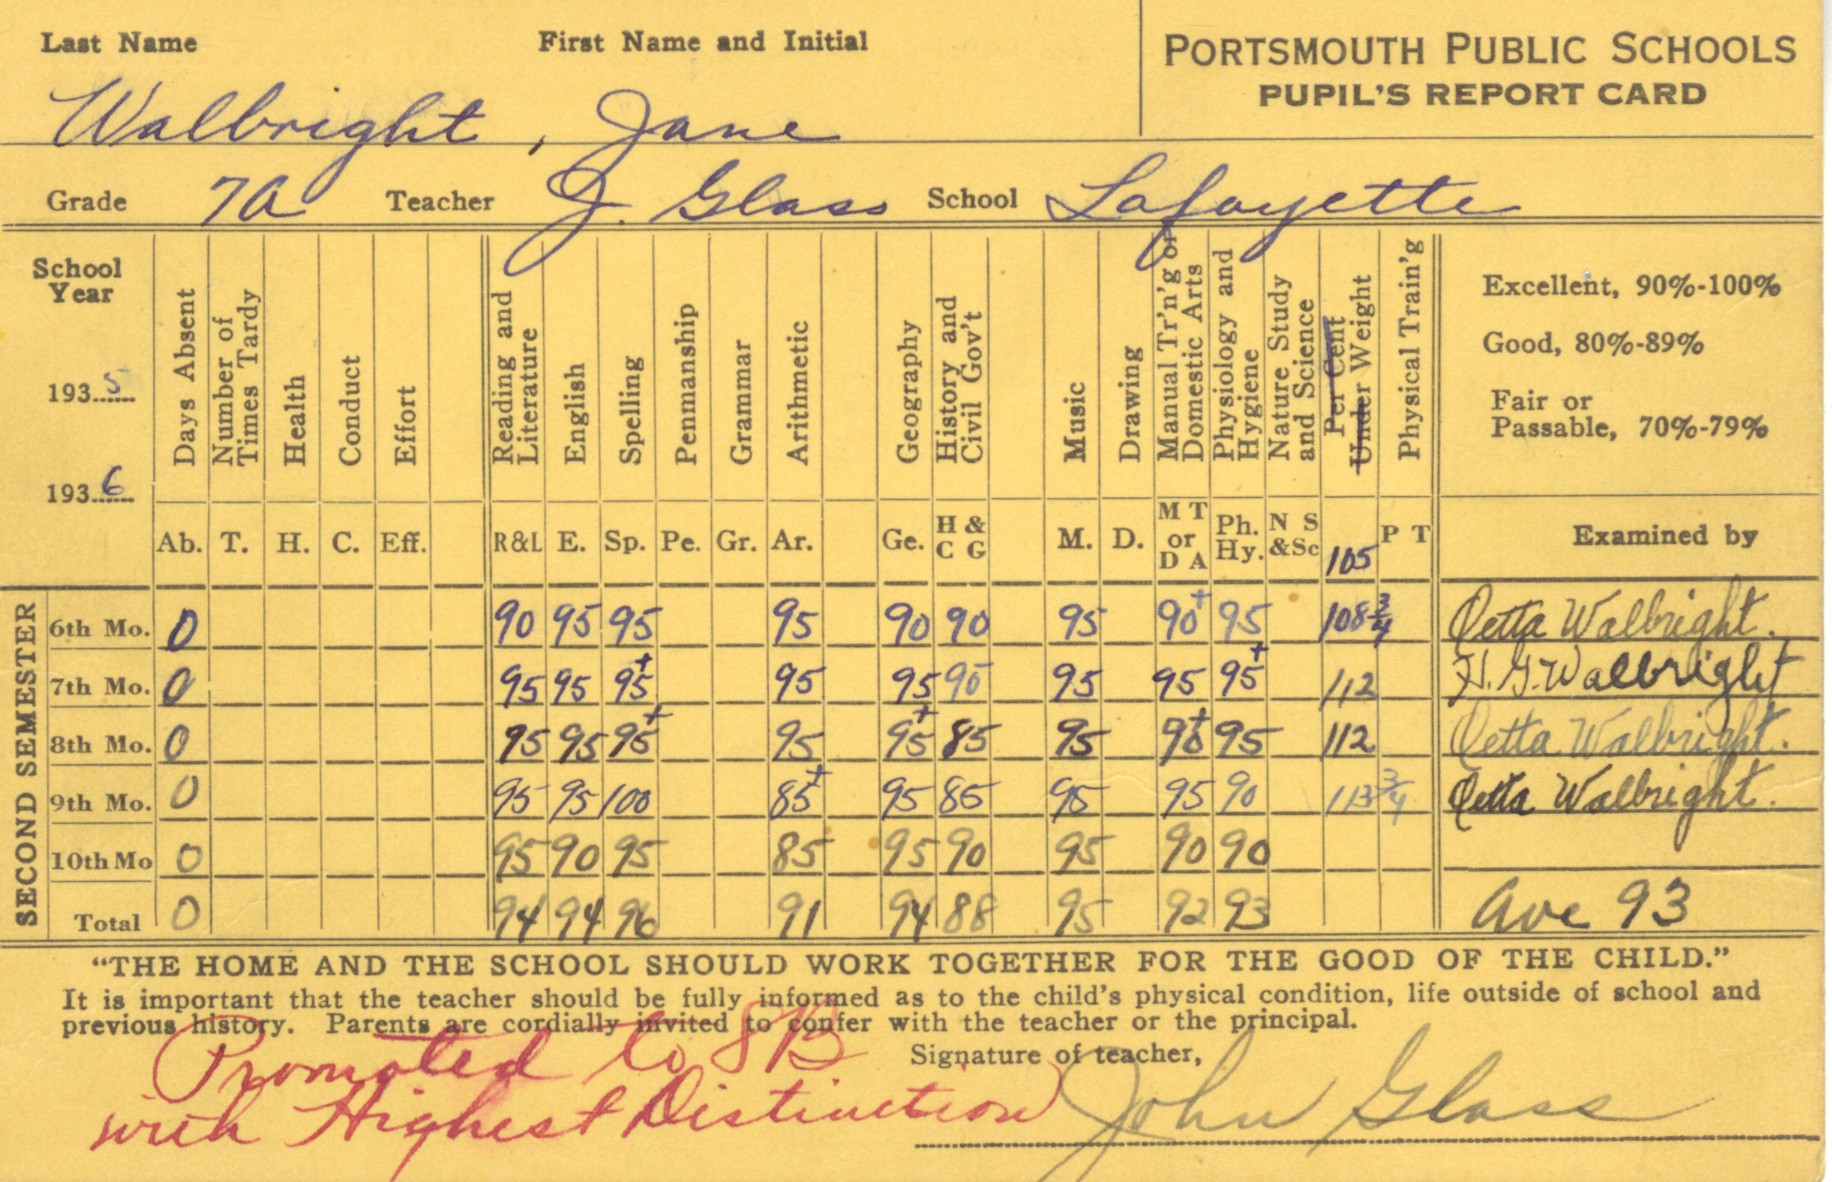 Last Name First Name and Initial
PORTSMOUTH PUBLIC SCHOOLS
PUPIL'S REPORT CARD
Walbright, Jane
Grade 7A Teacher J. Glass School Lafayette
School Year
1935
1936
Days Absent
Number of Times Tardy
Health
Conduct
Effort
Reading and Literature
English
Spelling
Penmanship
Grammar
Arithmetic
Geography
History and Civil Gov't
Music
Drawing
Manual Tr'n'g or Domestic Arts
Physiology and Hygiene
Nature Study and Science
Per Cent Under Weight
Physical Train'g
Excellent, 90%-100%
Good, 80%-89%
Fair or
Passable, 70%-79%
Ab. T. H. C. Eff. R&L E. Sp. Pe. Gr. Ar. Ge. H & C G M. D. M T or D A Ph. Hy. N S &Sc 105 P T Examined by
SECOND SEMESTER
6th Mo. 0 90 95 95 95 90 90 95 90+ 95 108 3/4 Oetta Walbright.
7th Mo. 0 95 95 95+ 95 95 90- 95 95 95+ 112 H. G. Walbright
8th Mo. 0 95 95 95+ 95 95+ 85 95 90+ 95 112 Oetta Walbright.
9th Mo. 0 95 95 100 85+ 95 85 95 95 90 113 3/4 Oetta Walbright.
10th Mo 0 95 90 95 85 95 90 95 90 90
Total 0 94 94 96 91 94 88 95 92 93 Ave 93
"THE HOME AND THE SCHOOL SHOULD WORK TOGETHER FOR THE GOOD OF THE CHILD."
It is important that the teacher should be fully informed as to the child's physical condition, life outside of school and
previous history. Parents are cordially invited to confer with the teacher or the principal.
Promoted to 8B
with Highest Distinction
Signature of teacher,
John Glass